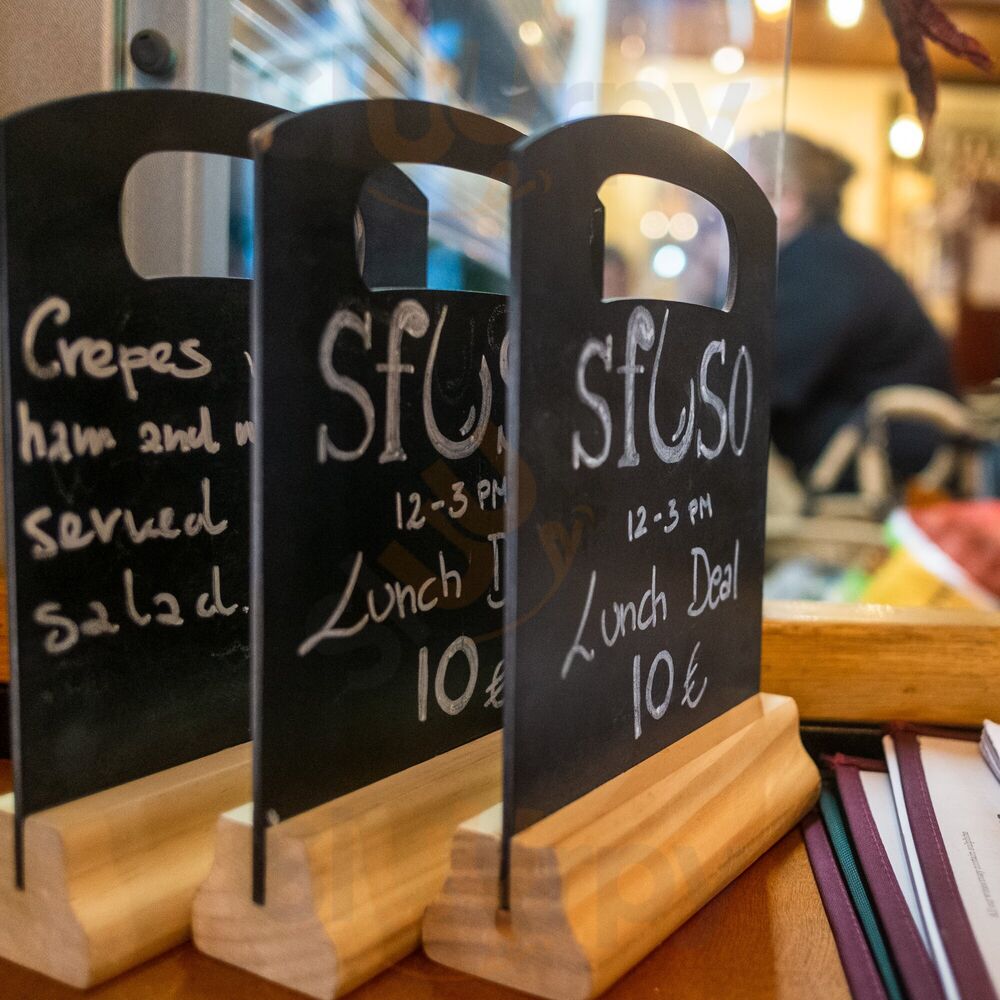 Crepes
ham and
served
salad.
sfuso
12-3 PM
Lunch
10€
sfuso
12-3 PM
Lunch Deal
10€